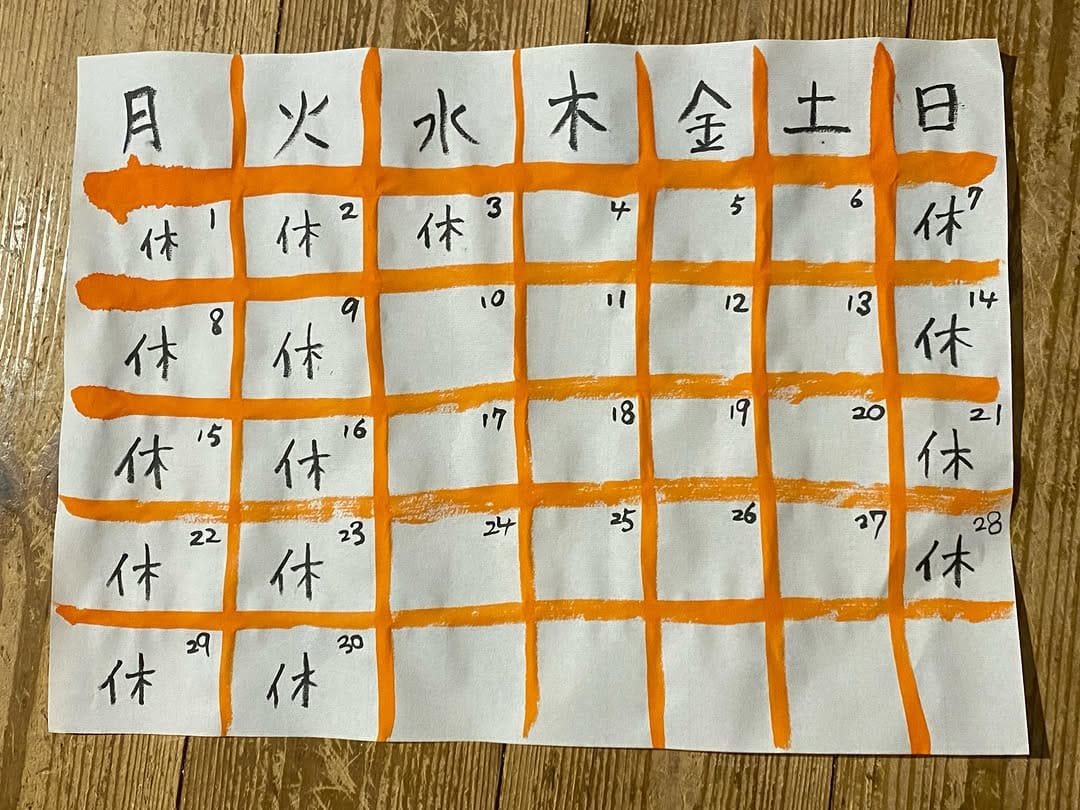 月 火 水 木 金 土 日
休 1 休 2 休 3 4 5 6 休 7
休 8 休 9 10 11 12 13 休 14
休 15 休 16 17 18 19 20 休 21
休 22 休 23 24 25 26 27 休 28
休 29 休 30